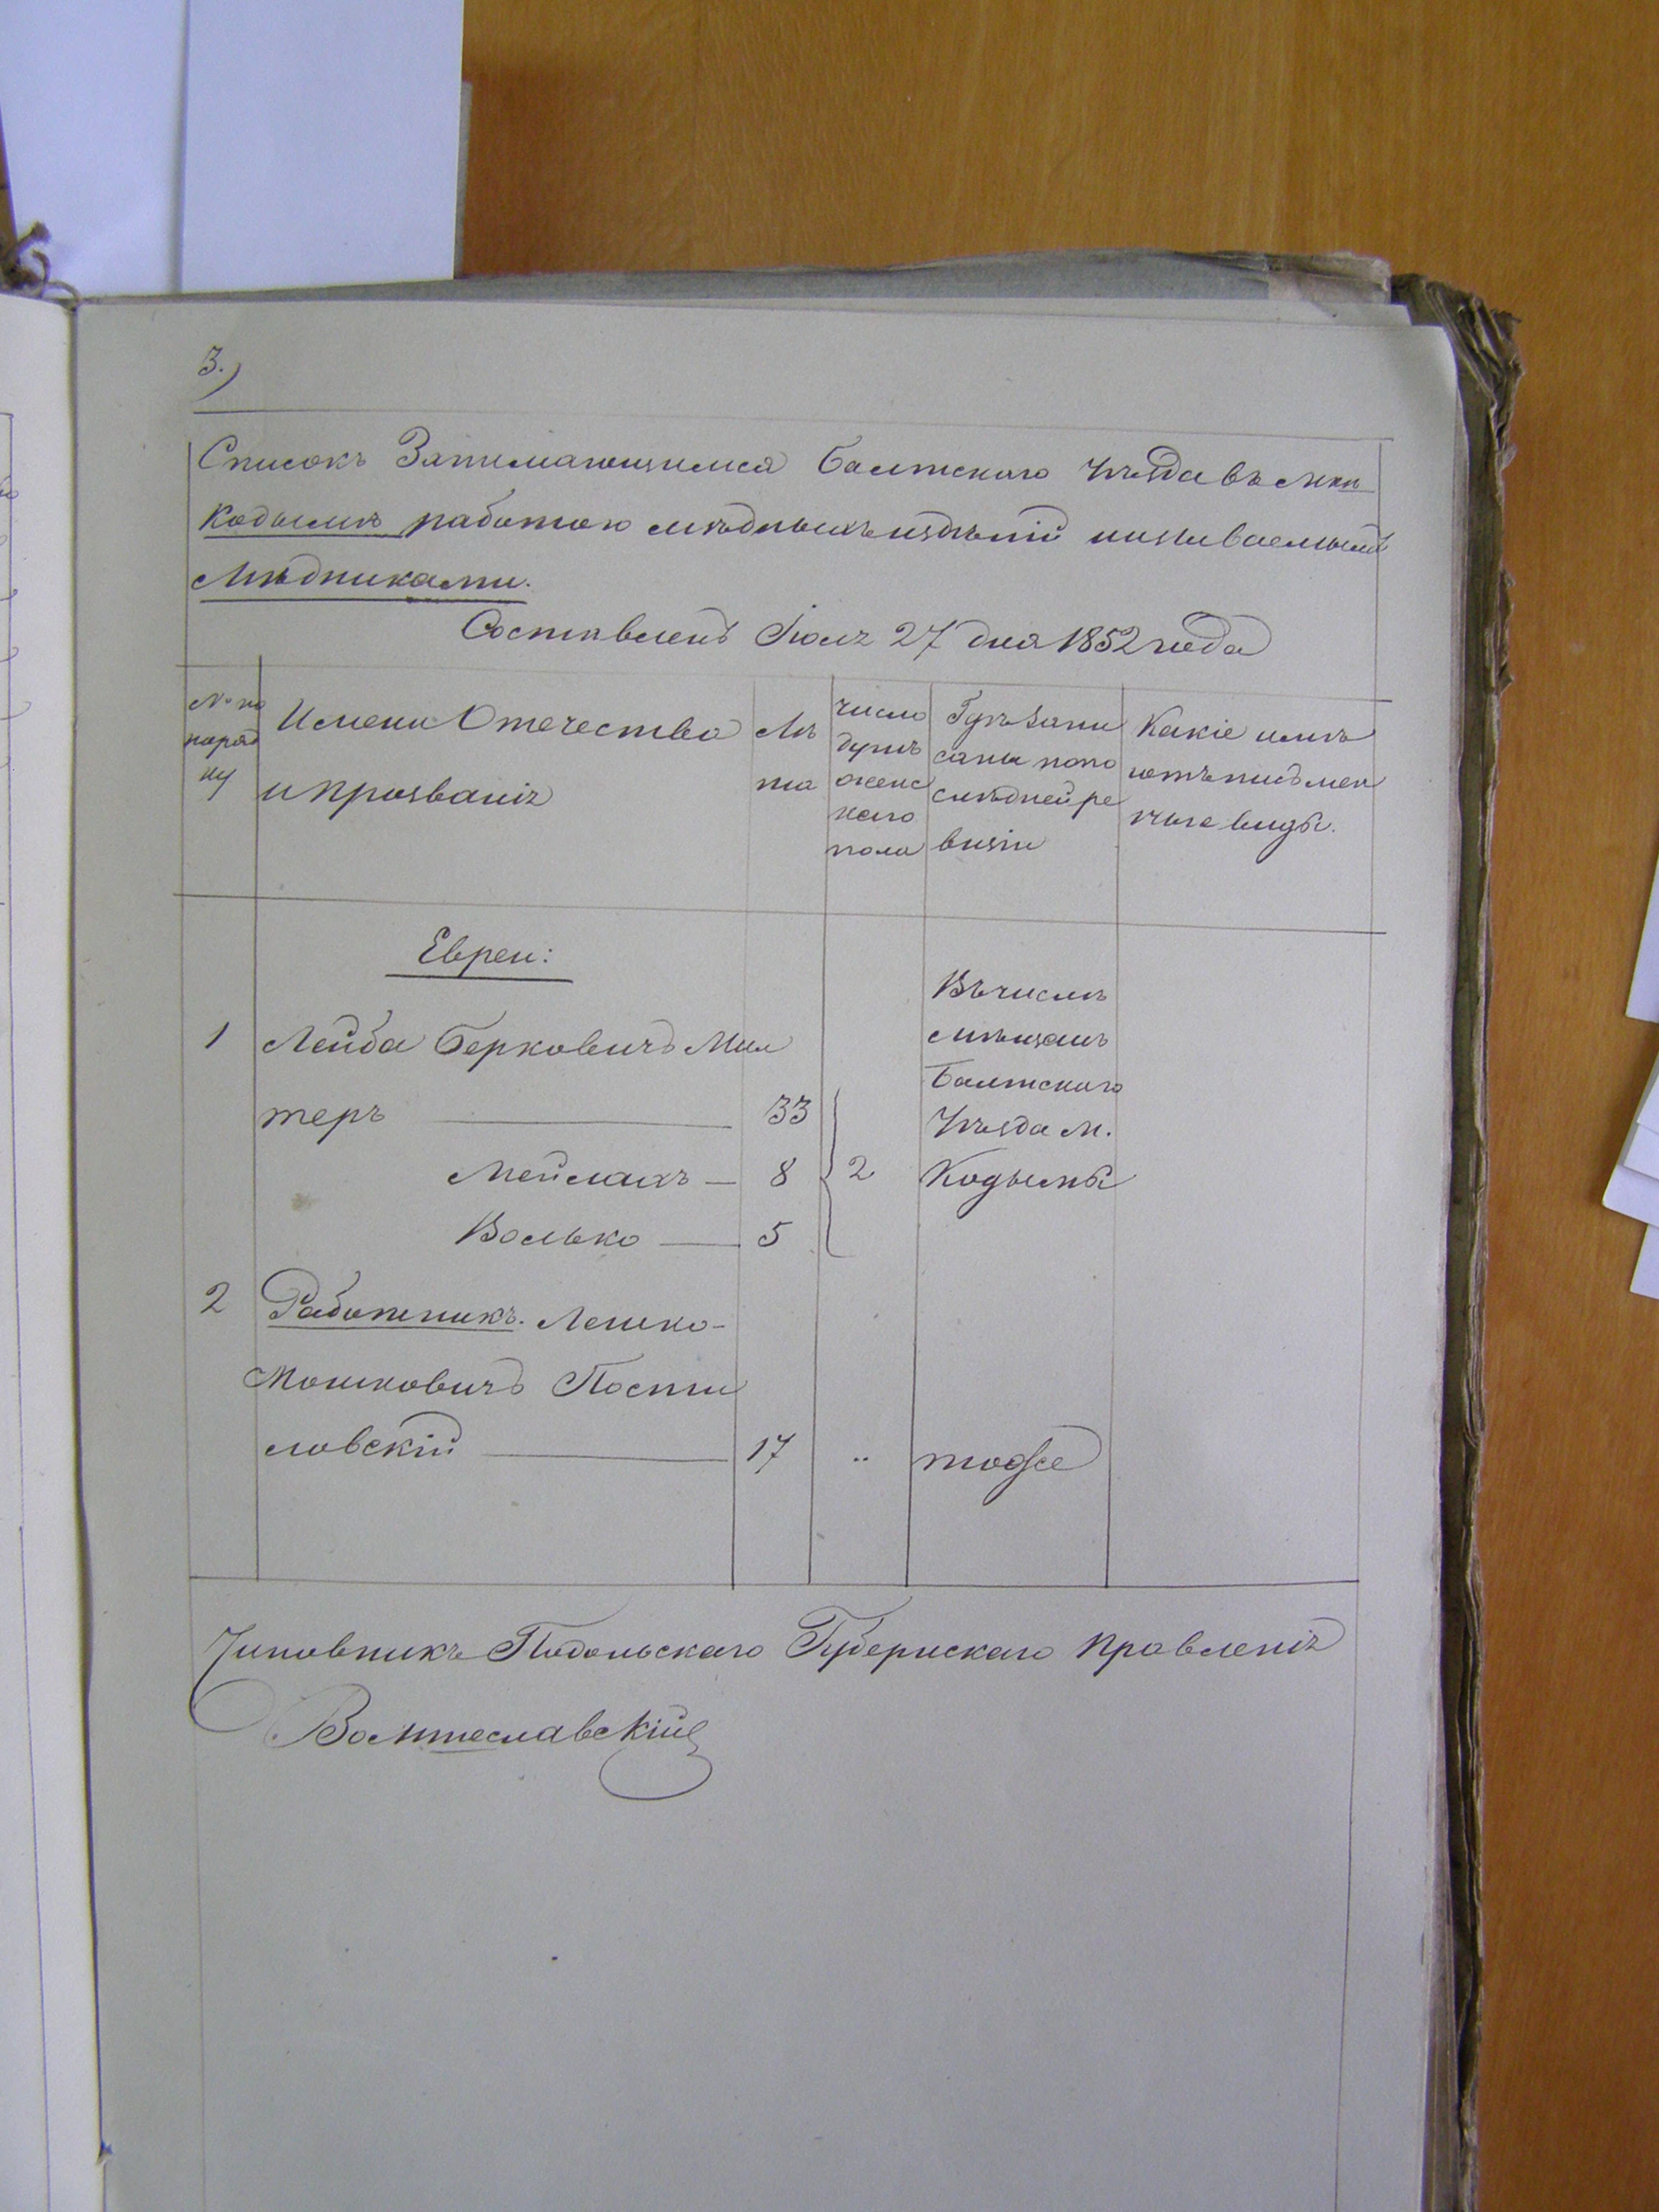 3.)
Списокъ Занимающимся Балтскаго Уѣзда въ м̶
Кодымѣ работою мѣдныхъ издѣлій называемымъ
Мѣдниками.
Составленъ Іюля 27 дня 1852 года
№ по поряд ку
Имена Отечество и прозванія
Лѣ та
число душъ женс каго пола
Гдѣ запи саны по по слѣдней ре визіи
Какіе имѣ ютъ письмен ные виды.
Евреи:
1 Лейба Берковичъ Мил
теръ 33
Мейлахъ 8
Волько 5
2
Въ числѣ
мѣщанъ
Балтскаго
Уѣзда м.
Кодымы
2 Работникъ. Лешко
Мошковичъ Пости
ловскій 17 " тоже
Чиновникъ Подольскаго Губернскаго Правленія